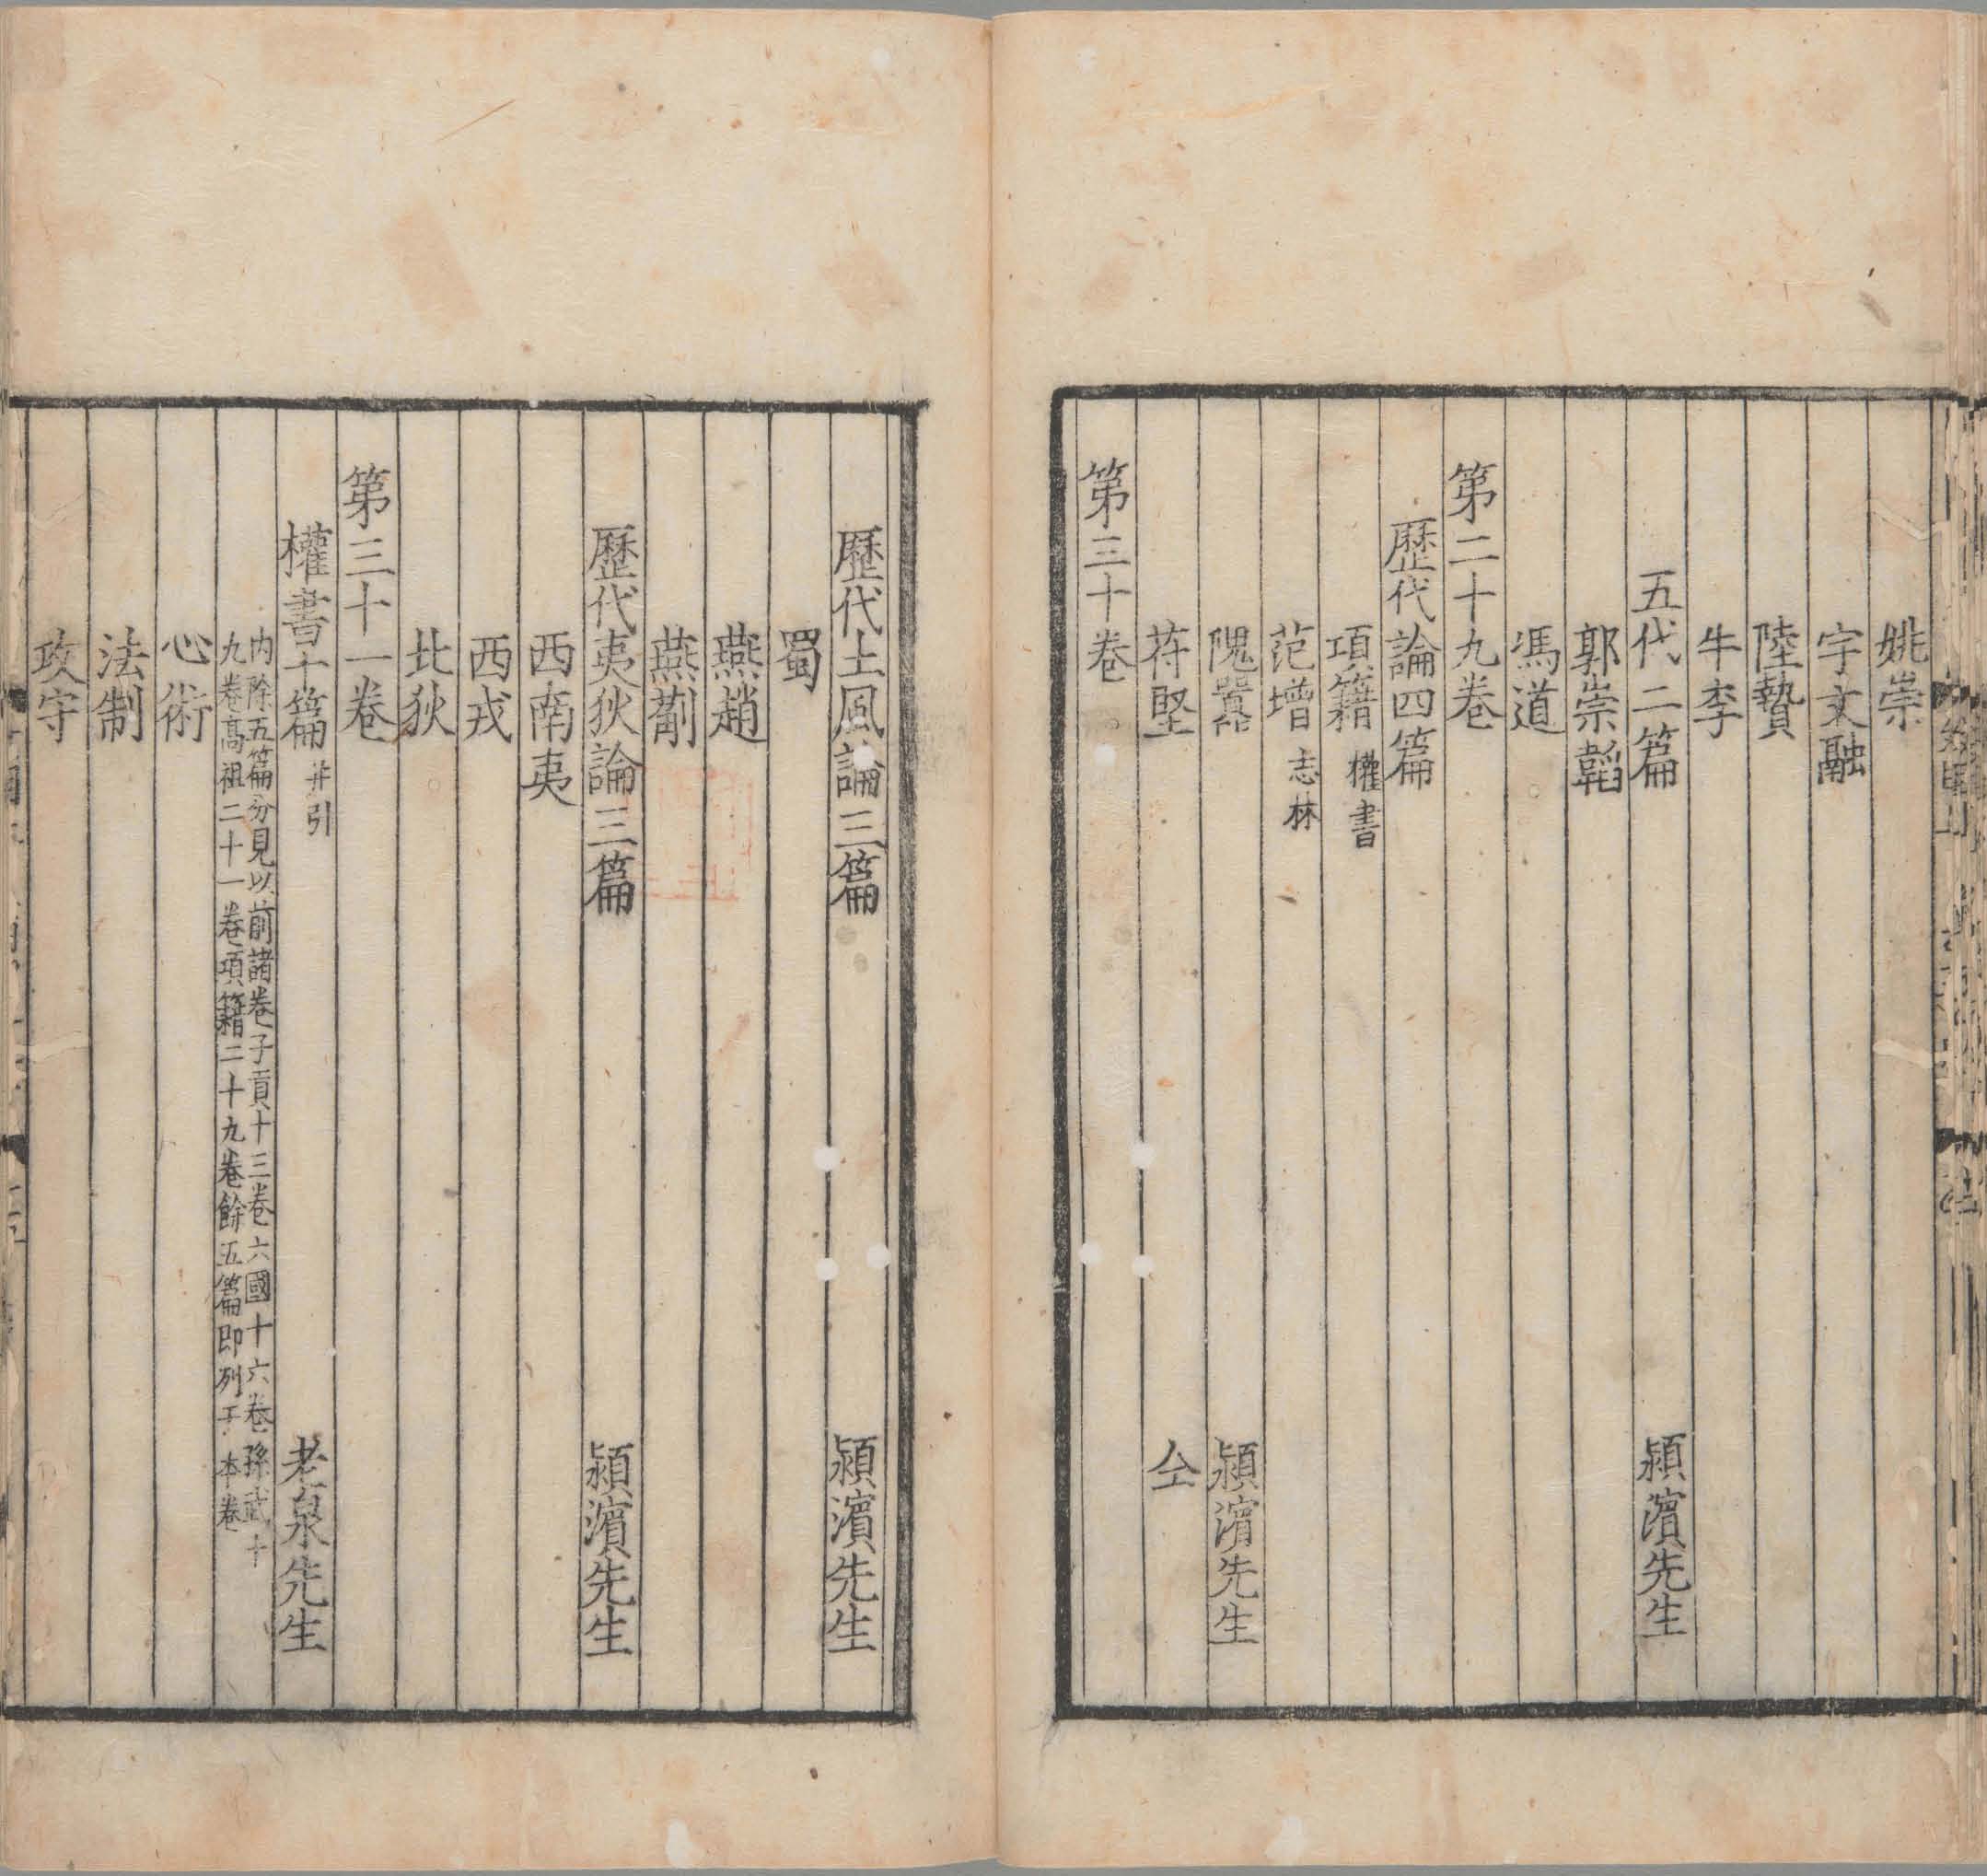 姚崇
宇文融
陸贄
牛李
五代二篇 潁濱先生
郭崇韜
馮道
第二十九卷
歷代論四篇
項籍 權書
范增 志林
隗囂 潁濱先生
苻堅 仝
第三十卷
歷代土風論三篇 潁濱先生
蜀
燕趙
燕薊
歷代夷狄論三篇 潁濱先生
西南夷
西戎
北狄
第三十一卷
權書十篇 并引 老泉先生
内除五篇分見以前諸卷子貢十三卷六國十六卷孫武十
九卷高祖二十一卷項籍二十九卷餘五篇即列于本卷
心術
法制
攻守